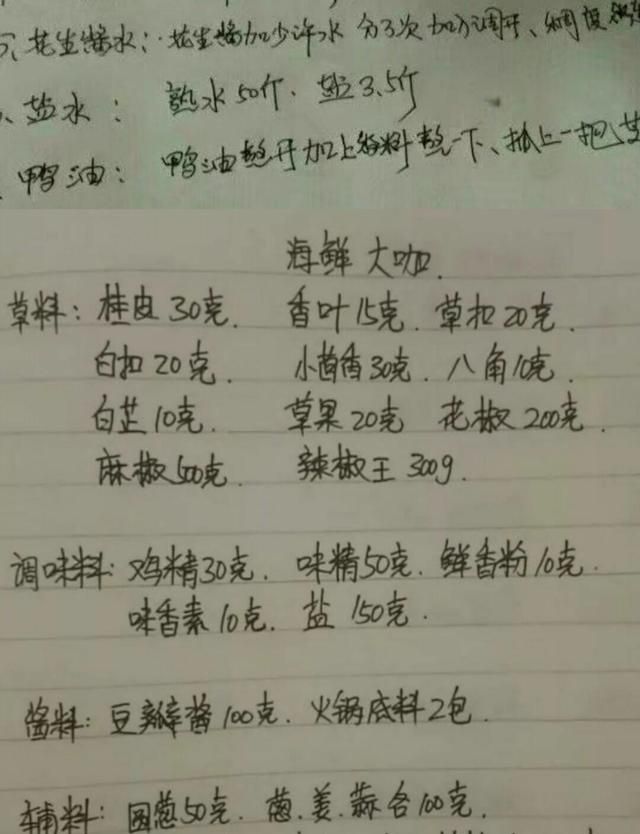 花生酱水：花生酱加少许水 分3次加入调开、稠度
盐水： 热水50斤、盐3.5斤
鸭油： 鸭油熬开加上香料熬一下、抓上一把
海鲜大咖.
草料：桂皮30克. 香叶15克. 草扣20克.
白扣20克. 小茴香30克. 八角10克.
白芷10克. 草果20克 花椒200克.
麻椒500克. 辣椒王300g.
调味料：鸡精30克. 味精50克. 鲜香粉10克.
味香素10克. 盐150克.
酱料：豆瓣酱100克. 火锅底料2包.
辅料：圆葱50克. 葱.姜.蒜合100克.